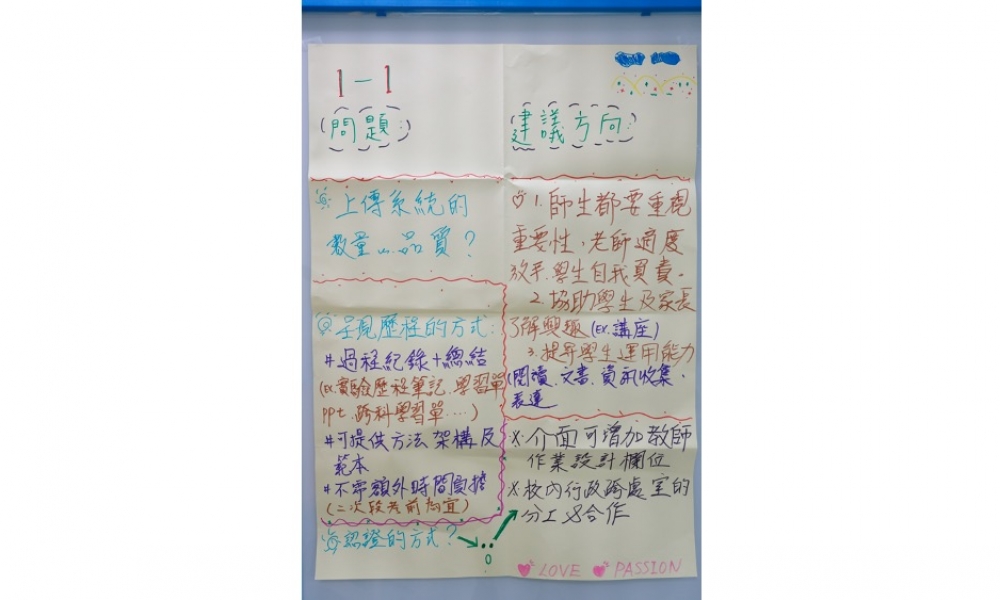 1-1
問題:
上傳系統的
數量…品質?
呈現歷程的方式:
#過程紀錄+總結
(Ex.實驗歷程筆記.學習單
ppt.跨科學習單....)
#可提供方法架構及
範本
#不零額外時間負擔
(二次段考前為宜)
認證的方式?
建議方向:
1.師生都要重視
重要性,老師適度
放手.學生自我負責.
2.協助學生及家長
了解興趣(Ex.講座)
3.提昇學生運用能力
(閱讀.文書.資訊收集、
表達
※介面可增加教師
作業設計欄位
※校內行政跨處室的
分工&合作
LOVE PASSION